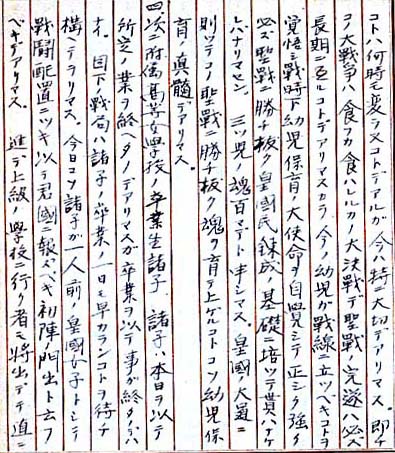 コトハ何時モ変ラヌコトデアルガ今ハ特ニ大切デアリマス。即チ
コノ大戦争ハ食フカ食ハレルカノ大決戦デ聖戦完遂ハ必ズ
長期ニ亙ルコトデアリマスカラ、今ノ幼児ガ戦線ニ立ツベキコトヲ
覚悟シ戦時下幼児保育ノ大使命ヲ自覚シテ正シク強ク
必ズ聖戦ニ勝チ抜ク皇国民錬成ノ基礎ニ培ツテ貰ハナケ
レバナリマセン。三ツ児ノ魂百マデト申シマス。皇国ノ大道ニ
則ツテコノ聖戦ニ勝チ抜ク魂ヲ育テ上ゲルコトコソ幼児保
育ノ真髄デアリマス。
四、次ニ附属高等女学校ノ卒業生諸子、諸子ハ本日ヲ以テ
所定ノ業ヲ終ヘタノデアリマスガ卒業ヲ以テ事ガ終タノデハ
ナイ。目下ノ戦局ハ諸子ノ卒業ノ一日モ早カランコトヲ待チ
構ヘテヲリマス。今日コソ諸子ガ一人前ノ皇国女子トシテ
戦闘配置ニツキ以テ君国ニ報ズベキ初陣門出ト云フ
ベキデアリマス。進デ上級ノ学校ニ行ク者モ将出デテ直ニ